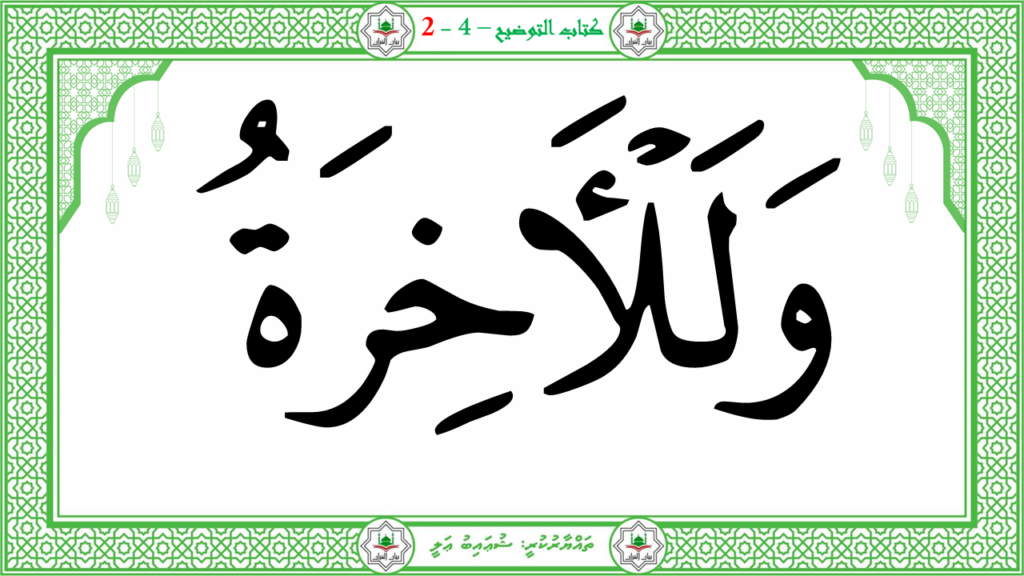 كتاب التوضيح – 4 - 2
وَلَلْأَخِرَةُ
ތައްޔާރުކުރީ: ޝުޢައިބު ޢަލީ